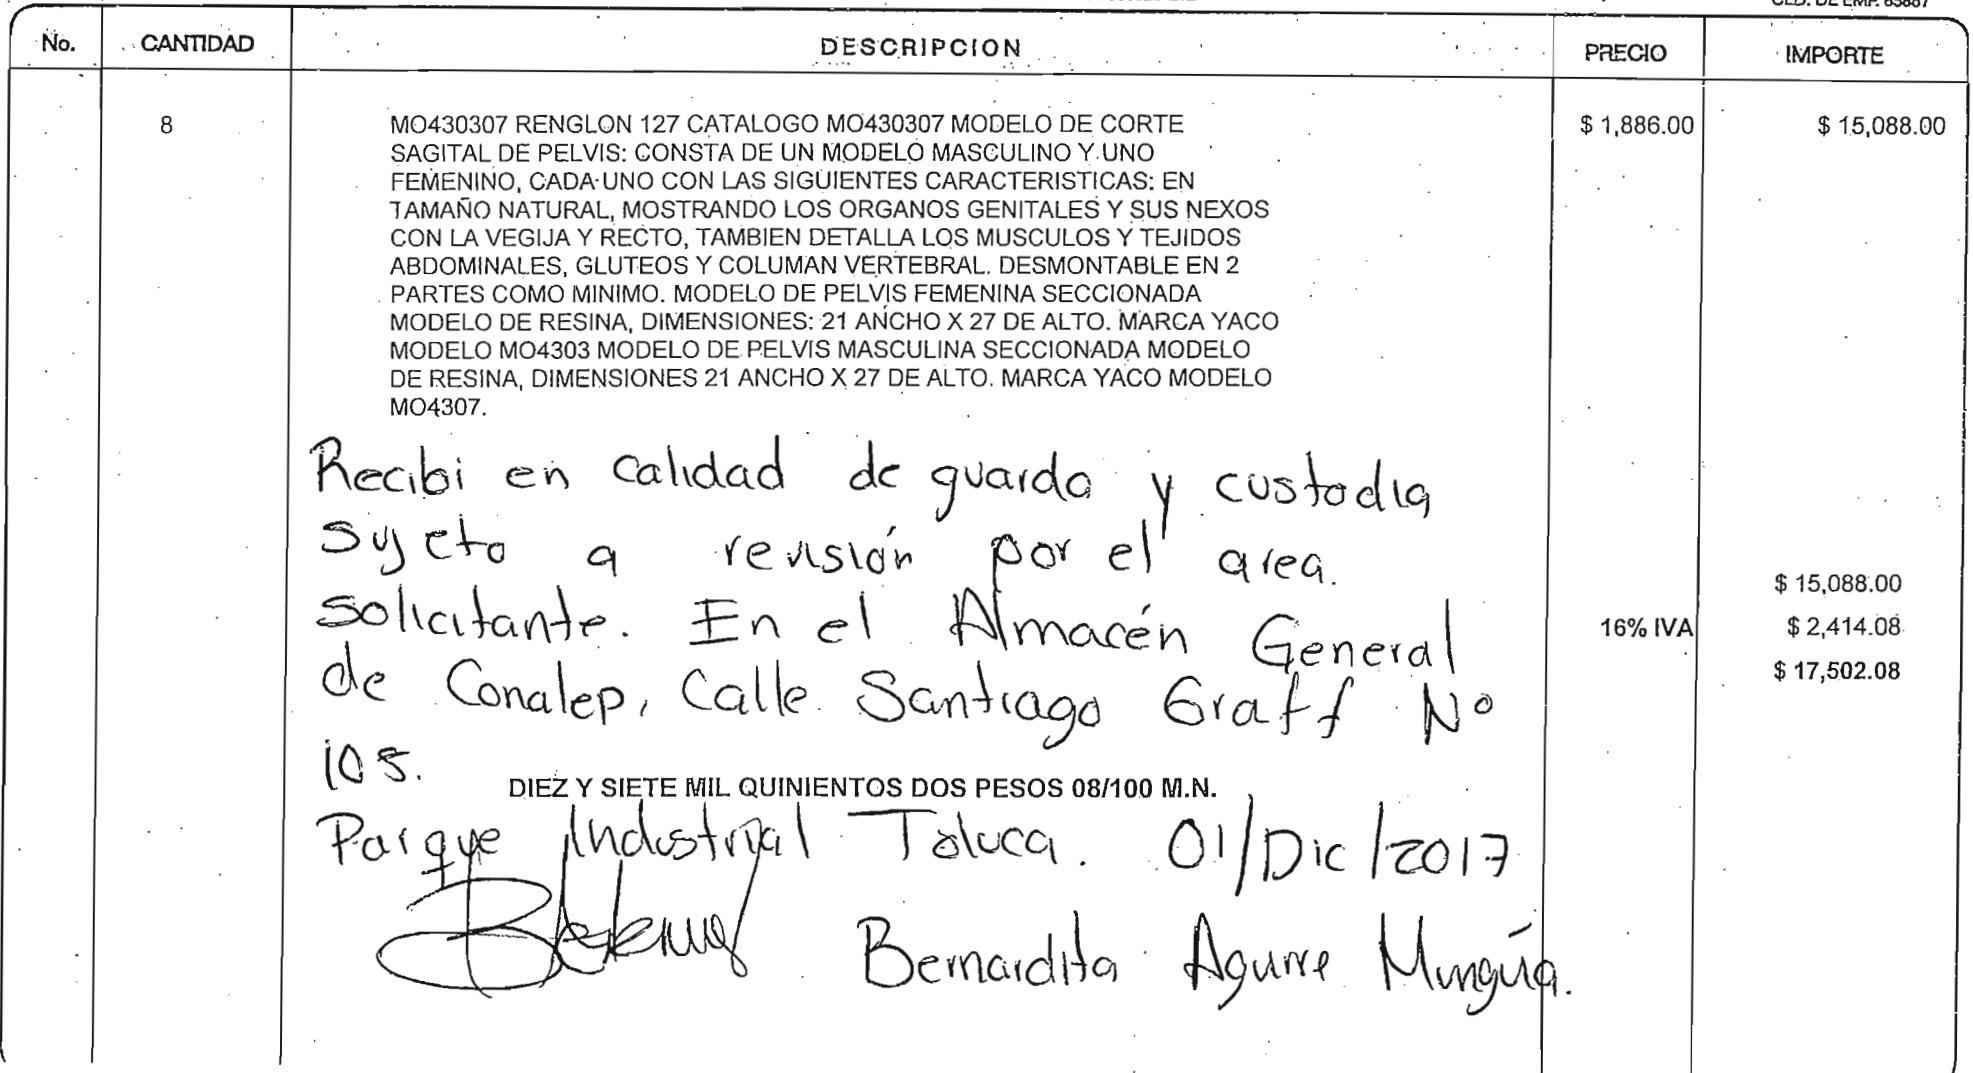 CED. DE EMP. 65867
No. CANTIDAD DESCRIPCION PRECIO IMPORTE
8 MO430307 RENGLON 127 CATALOGO MO430307 MODELO DE CORTE $ 1,886.00 $ 15,088.00
SAGITAL DE PELVIS: CONSTA DE UN MODELO MASCULINO Y UNO
FEMENINO, CADA UNO CON LAS SIGUIENTES CARACTERISTICAS: EN
TAMAÑO NATURAL, MOSTRANDO LOS ORGANOS GENITALES Y SUS NEXOS
CON LA VEGIJA Y RECTO, TAMBIEN DETALLA LOS MUSCULOS Y TEJIDOS
ABDOMINALES, GLUTEOS Y COLUMAN VERTEBRAL. DESMONTABLE EN 2
PARTES COMO MINIMO. MODELO DE PELVIS FEMENINA SECCIONADA
MODELO DE RESINA, DIMENSIONES: 21 ANCHO X 27 DE ALTO. MARCA YACO
MODELO MO4303 MODELO DE PELVIS MASCULINA SECCIONADA MODELO
DE RESINA, DIMENSIONES 21 ANCHO X 27 DE ALTO. MARCA YACO MODELO
MO4307.
Recibi en calidad de guarda y custodia
sujeto a revisión por el area.
$ 15,088.00
solicitante. En el Almacén General
16% IVA $ 2,414.08
$ 17,502.08
de Conalep, Calle Santiago Graff Nº
105.
DIEZ Y SIETE MIL QUINIENTOS DOS PESOS 08/100 M.N.
Parque Industrial Toluca. 01/Dic/2017
Bernardita Aguirre Munguía.